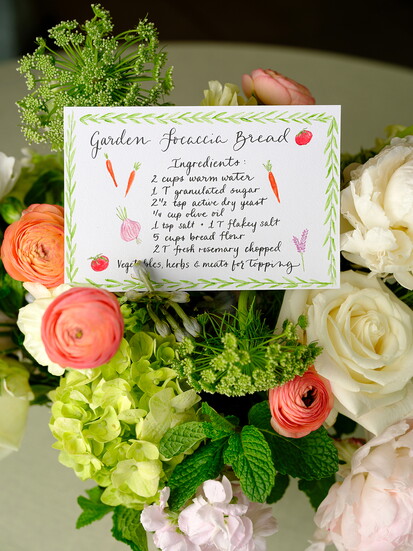 Garden Focaccia Bread
Ingredients:
2 cups warm water
1 T granulated sugar
2½ tsp active dry yeast
¼ cup olive oil
1 tsp salt + 1 T flakey salt
5 cups bread flour
2 T fresh rosemary chopped
Vegetables, herbs & meats for topping